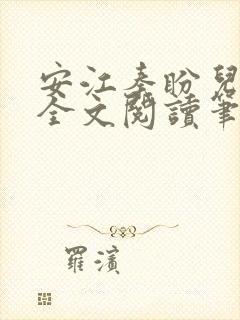 安江秦盼兒
全文閱讀筆
羅濱